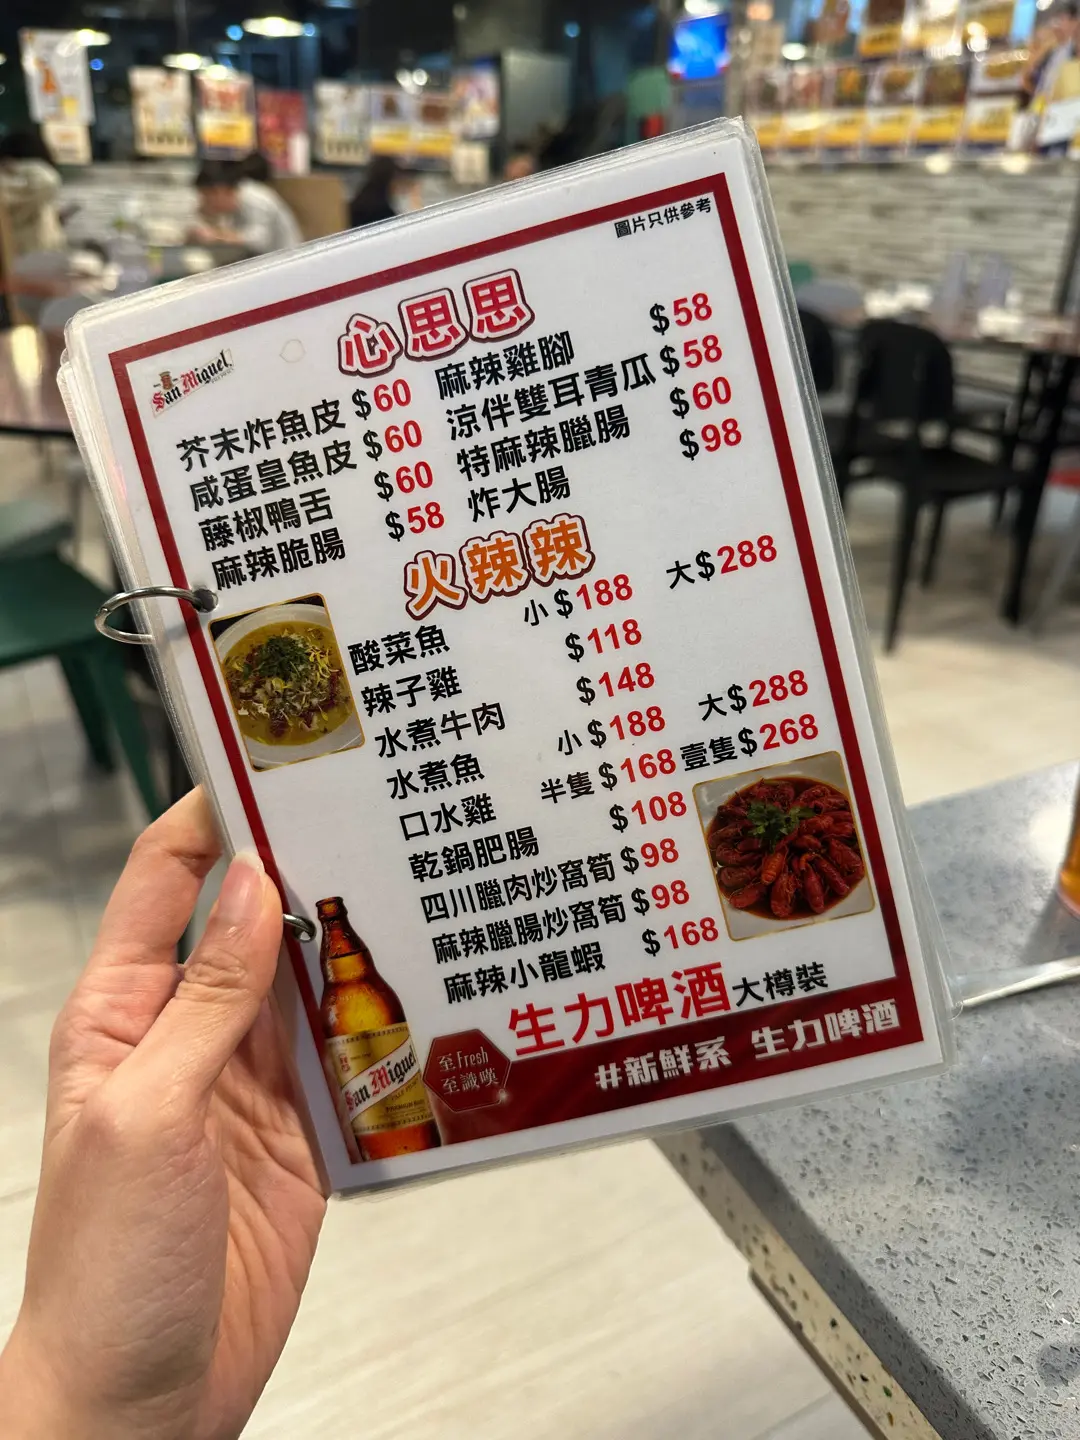 圖片只供參考
San Miguel
心思思
芥末炸魚皮 $60
咸蛋皇魚皮 $60
藤椒鴨舌 $60
麻辣脆腸 $58
麻辣雞腳 $58
涼伴雙耳青瓜 $58
特麻辣臘腸 $60
炸大腸 $98
火辣辣
酸菜魚 小$188 大$288
辣子雞 $118
水煮牛肉 $148
水煮魚 小$188 大$288
口水雞 半隻$168 壹隻$268
乾鍋肥腸 $108
四川臘肉炒窩筍 $98
麻辣臘腸炒窩筍 $98
麻辣小龍蝦 $168
生力啤酒 大樽裝
San Miguel
至Fresh
至識嘆
#新鮮系 生力啤酒